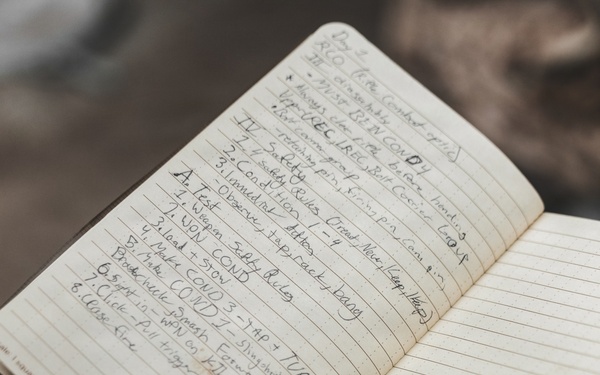 Day 1
RCO (Rifle Combat optic)
III disassembly
- MUST BE IN COND 4
* Always clear rifle before handing
Upper(REC, REC, Bolt Carrier Group
* Bolt carrier group
- retaining pin, firing pin, cam pin,
IV. Safety
1. 4 safety Rules (Treat, Never, Keep, Keep)
2. Condition 1-4
3. Immediate Action
Observe, tap, rack, bang
A. Test
1. Weapon Safty Rules
2. WPN COND
3. load + stow
4. Make COND 3 - YAP +
5. Make COND 1 - Slingshot
Brass check, Smash Forward
6. Sight in - WPN on
7. Click - Pull trigger
8. Cease fire